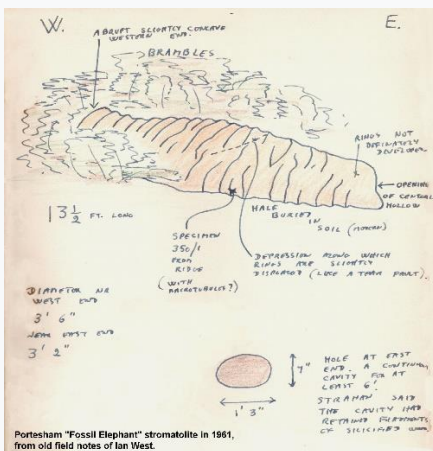 W.
E.
ABRUPT SLIGHTLY CONCAVE
WESTERN END.
BRAMBLES
RINGS NOT
DEFINATELY
DEVELOPED
OPENING
OF CENTRAL
HOLLOW
13 1/2 FT. LONG
HALF
BURIED
IN
SOIL (HUMAN)
SPECIMEN
350/1
FROM
RIDGE
(WITH
MICROTUBULES?)
DEPRESSION ALONG WHICH
RINGS ARE SLIGHTLY
DISPLACED (LIKE A TEAR FAULT).
DIAMETER NR
WEST END
3' 6"
NEAR EAST END
3' 2"
7"
1' 3"
HOLE AT EAST
END. A CONTINUOUS
CAVITY FOR AT
LEAST 6'.
STRAHAN SAID
THE CAVITY HAD
RETAINED FRAGMENTS
OF SILICIFIED WOOD.
Portesham "Fossil Elephant" stromatolite in 1961,
from old field notes of Ian West.